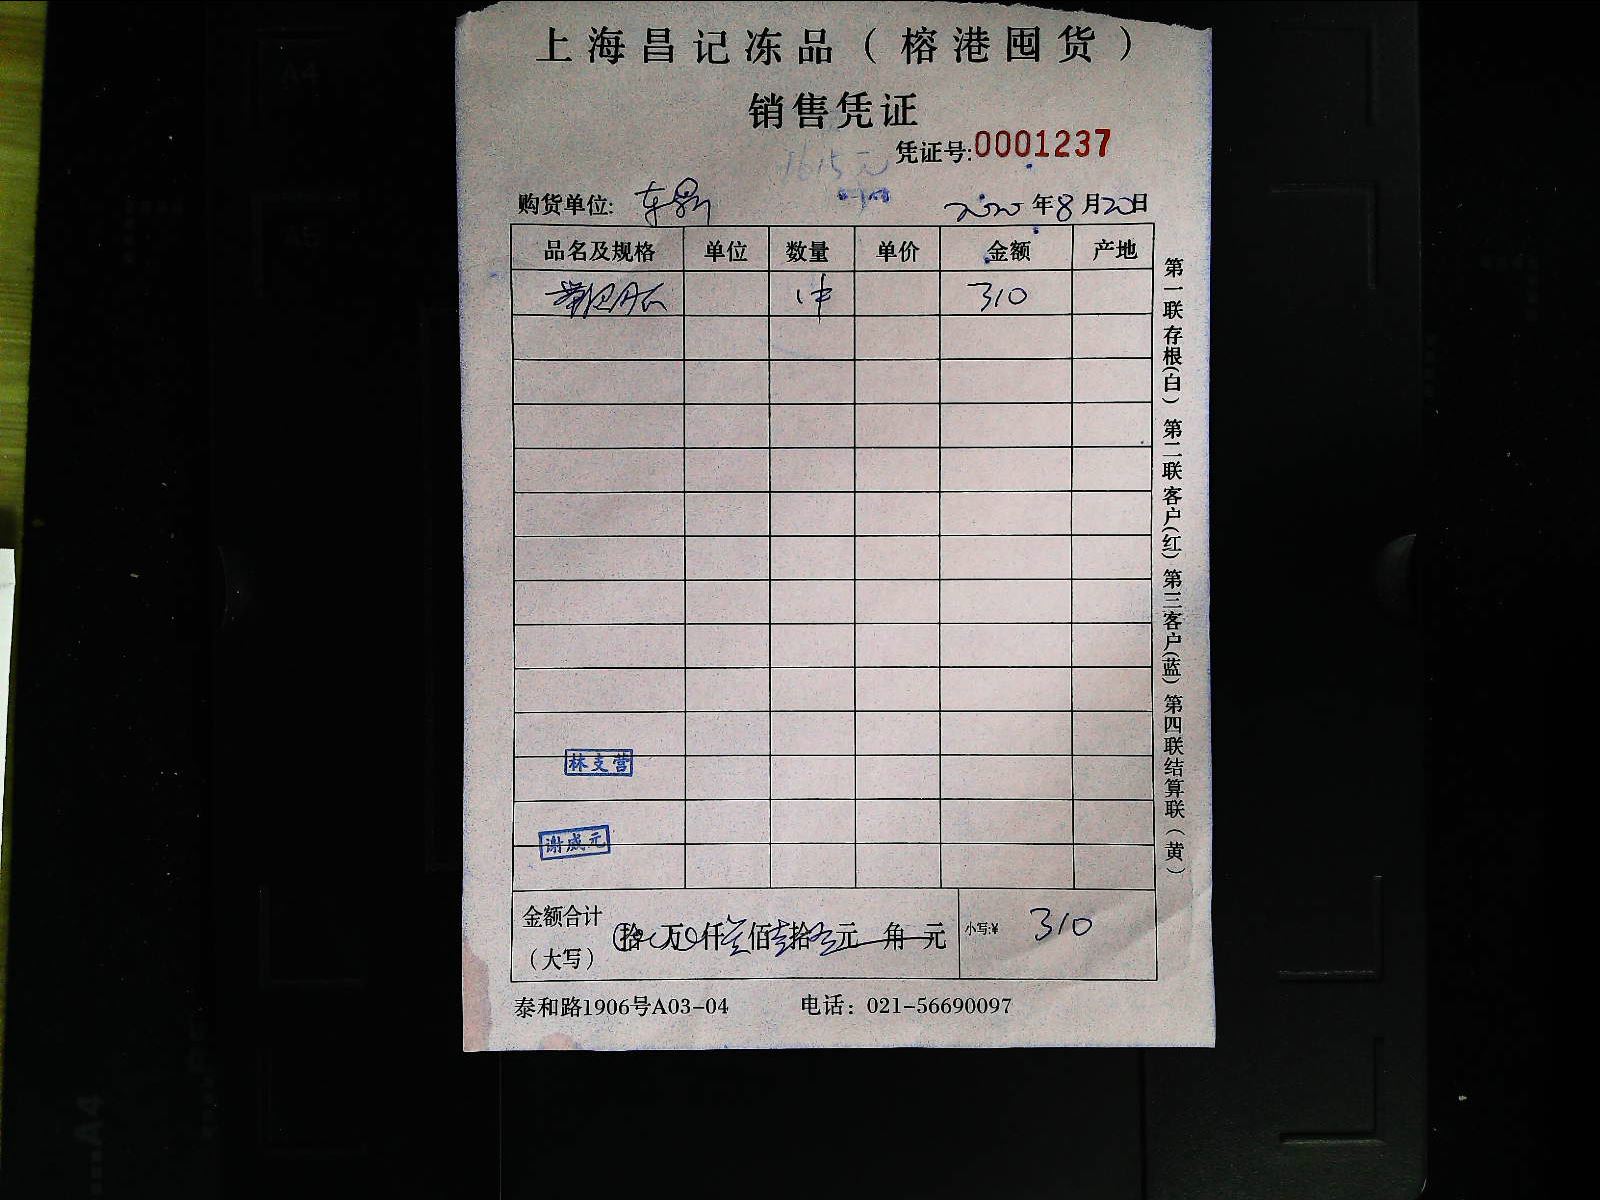 上海昌记冻品（榕港囤货）
销售凭证
凭证号:0001237
1615元
购货单位: 2020年8月20日
品名及规格 单位 数量 单价 金额 产地
1件 310
林支营
谢成元
金额合计（大写） 拾万0仟叁佰壹拾元角元 小写:¥ 310
泰和路1906号A03-04 电话：021-56690097
第一联存根(白) 第二联客户(红) 第三客户(蓝) 第四联结算联（黄）